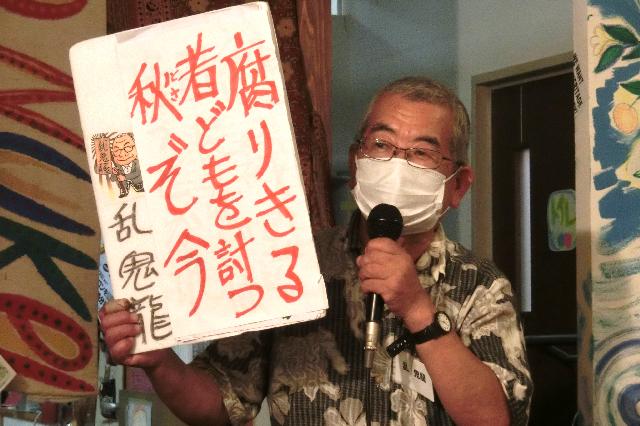 腐りきる
者どもを討つ
ぞ今
秋
とき
乱鬼龍